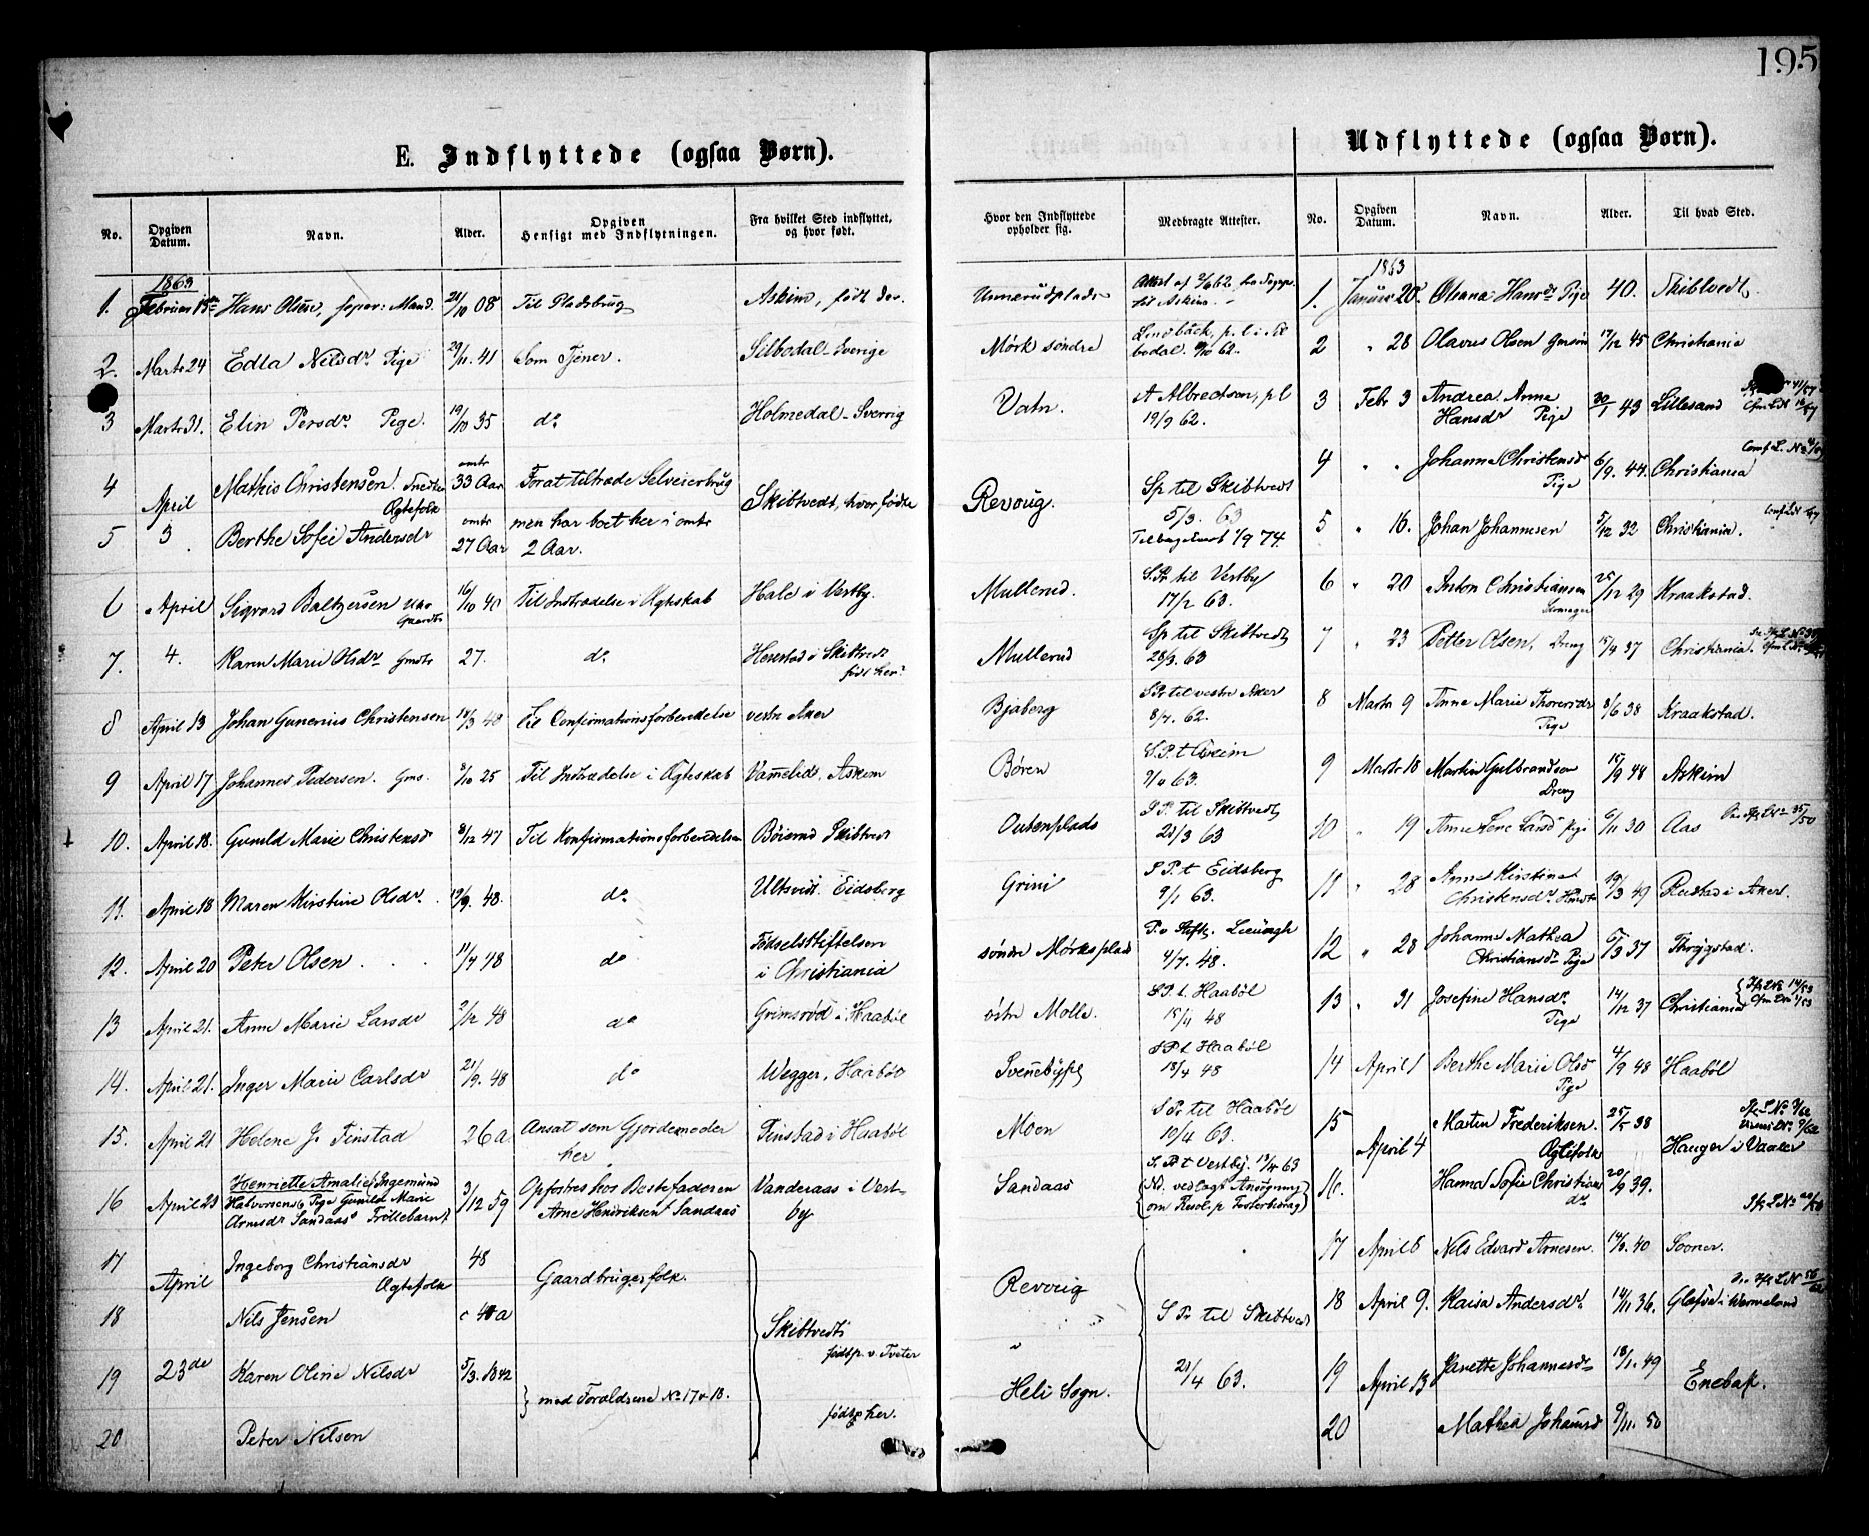 195
E. Indflyttede (ogsaa Børn).
Udflyttede (ogsaa Børn).
No. Opgiven Datum. Navn. Alder. Opgiven Hensigt med Indflytningen. Fra hvilket Sted indflyttet, og hvor født. Hvor den Indflyttede opholder sig. Medbragte Attester.
No. Opgiven Datum. Navn. Alder. Til hvad Sted.
1863
1. Februar Hans Olsen, Mand. 08 Til Pladsbrug Askim, født der.
2. Marts 24 Edla Nilsdr Pige 29/11. 41 Som Tjener. Silbodal - Sverige Mørk søndre
3 Marts 31. Elin Persdr Pige. 19/10 35 do Holmedal - Sverrig Vatn. A Albrectson, pl 19/9 62.
4 April Mathis Christensen. Ægtefolk omtr 33 Aar For at tiltræde Selveierbrug Skibtvedt, hvor fødte Revoug. Sp til Skibtvedt 5/3. 63
5 3. Berthe Sofie Andersdr omtr 27 Aar men har boet her i omtr 2 Aar. 1/9 74.
6 April Sigvard Baltzersen 16/10 40 Til Indtrædelse i Ægteskab i Vestby. Mullerud. S.Pr til Vestby 17/2 63.
7. 4. Karen Marie Olsdr Gmdtr 27. do i Skibtvedt født her. Mullerud Sp til Skibtvedt 28/3. 63
8 April 13 Johan Gunerius Christensen 48 Til Confirmationsforberedelse vestre Aker Bjaberg S.Pr til vestre Aker 8/7. 62.
9 April 17 Johannes Pedersen. Gms. 8/10 25 Til Indtrædelse i Ægteskab Askim Børen 63.
10. April 18. Gunild Marie Christensd 8/12 47 Til Konfirmationsforberedelse Skibtvedt S.P. til Skibtvedt 21/3 63
11. April 18 Maren Kirstine Olsdr. 19/9. 48. do Eidsberg Grini S P. t Eidsberg 9/1 63.
12. April 20 Peter Olsen 11/7 48 do Fødselsstiftelsen i Christiania søndre Mørksplads 4/7. 48.
13 April 21. Anne Marie Larsdr 2/12 48 do Grimsrød i Haabøl østre Molle. S.P. t. Haabøl 15/11 48
14. April 21. Inger Marie Carlsdr 21/9. 48 do Wegger, Haabøl S.P. t Haabøl 18/4 48
15. April 21 Helene J. Finstad 26 a. Ansat som Gjordemoder her Finstad i Haabøl Moen S Pr til Haabøl 10/4 63.
16 April 23 Henriette Amalie Ingemund Halvorsens Pige Gunild Marie Arnesdr Sandaas 3/12 59 Opfostres hos Bestefaderen Arne Henriksen Sandaas Vanderaas i Vestby Sandaas S. Pr t Vestby. 13/4 63
17 April Ingeborg Christiansdr Ægtefolk 48 Gaardbrugerfolk. Revoug
18 Nils Jensen Skibtvedt S Pr til Skibtvedt
19 23de Karen Oline Nilsdr 5/3. 1842 med Forældrene No 17 & 18. Heli Sogn. 21/4 63.
20 Peter Nilsen
1863
1. Januar 20 Olsana Hansdr Pige 40. Skibtvedt
2 " 28 Olavus Olsen 17/12 45 Christiania
3 Febr 3 Andrea Anne Hansdr Pige 43 Lillesand
4 " " Johanne Christensdr Pige 6/9. 44. Christiania
5 " 16. Johan Johannesen 5/12 32 Christiania.
6 " 20 Anton Christiansen 29 Kraakstad.
7 " 23 Petter Olsen, Dreng 37 Christiania.
8 Marts 9 Anne Marie Pige 8/6 38 Kraakstad.
9 Marts 18 Martin Gulbrandsen Dreng 48 Askim
10 " 19 Anne Lene 6/11 30 Aas
11 " 28 Anne Kirstine Christensdr 19/3 49 i Aker.
12 " 28 Johanne Mathea Christiansdr Pige 37 Thrygstad.
13 " 31 Josefine Hansdr. Pige 14/12 37 Christiania
14 April 1 Berthe Marie Olsd Pige 4/9 48 Haabøl
15 April 4 Martin Frederiksen. Ægtefolk 25/5 38 Hauger i Vaaler
16. Hanna Sofie Christiansdr 20/9 39.
17 April 8 Nils Edvard Arnesen. 40 Sooner.
18 April 9. Kaisa Andersdr. 36. i Wermeland
19 April 13 Janette Johannesdr 18/1. 49 Enebak.
20 Mathea 9/11. 50